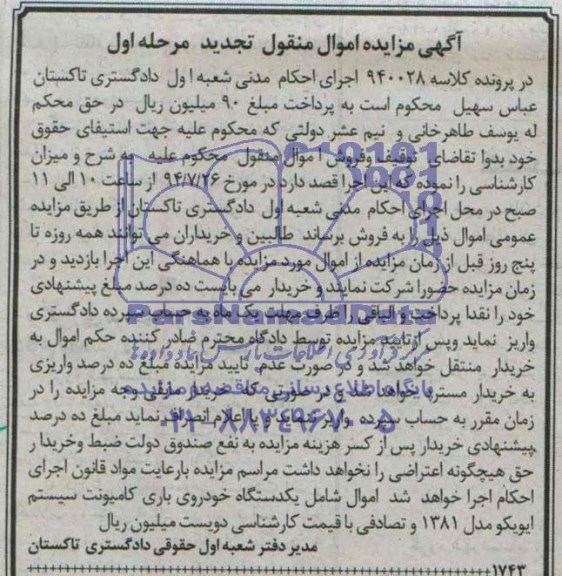 آگهی مزایده اموال منقول تجدید مرحله اول
در پرونده کلاسه ۹۴۰۰۲۸ اجرای احکام مدنی شعبه ا ول دادگستری تاکستان
عباس سهیل محکوم است به پرداخت مبلغ ۹۰ میلیون ریال در حق محکم
له یوسف طاهرخانی و نیم عشر دولتی که محکوم علیه جهت استیفای حقوق
خود بدوا تقاضای توقیف وفروش ا موال منقول محکوم علیه به شرح و میزان
کارشناسی را نموده که این اجرا قصد دارد در مورخ ۹۴/۷/۲۶ از ساعت ۱۰ الی ۱۱
صبح در محل اجرای احکام مدنی شعبه اول دادگستری تاکستان از طریق مزایده
عمومی اموال ذیل را به فروش برساند طالبین و خریداران می توانند همه روزه تا
پنج روز قبل از زمان مزایده از اموال مورد مزایده با هماهنگی این اجرا بازدید و در
زمان مزایده حضورا شرکت نمایند و خریدار می بایست ده درصد مبلغ پیشنهادی
خود را نقدا پرداخت و الباقی را ظرف مهلت یک ماه به حساب سپرده دادگستری
واریز نماید وپس از تایید مزایده توسط دادگاه محترم صادر کننده حکم اموال به
خریدار منتقل خواهد شد و در صورت عدم تایید مزایده مبلغ ده درصد واریزی
به خریدار مسترد خواهد شد و در صورتی که خریدار مابقی وجه مزایده را در
زمان مقرر به حساب سپرده واریز ننماید و یا اعلام انصراف نماید مبلغ ده درصد
پیشنهادی خریدار پس از کسر هزینه مزایده به نفع صندوق دولت ضبط وخریدا ر
حق هیچگونه اعتراضی را نخواهد داشت مراسم مزایده بارعایت مواد قانون اجرای
احکام اجرا خواهد شد اموال شامل یکدستگاه خودروی باری کامیونت سیستم
ایویکو مدل ۱۳۸۱ و تصادفی با قیمت کارشناسی دویست میلیون ریال
مدیر دفتر شعبه اول حقوقی دادگستری تاکستان
۱۷۴۳
ParsNamadData
پایگاه اطلاع رسانی مناقصه و مزایده
۰۲۱-۸۸۳۴۹۶۷۰-۵